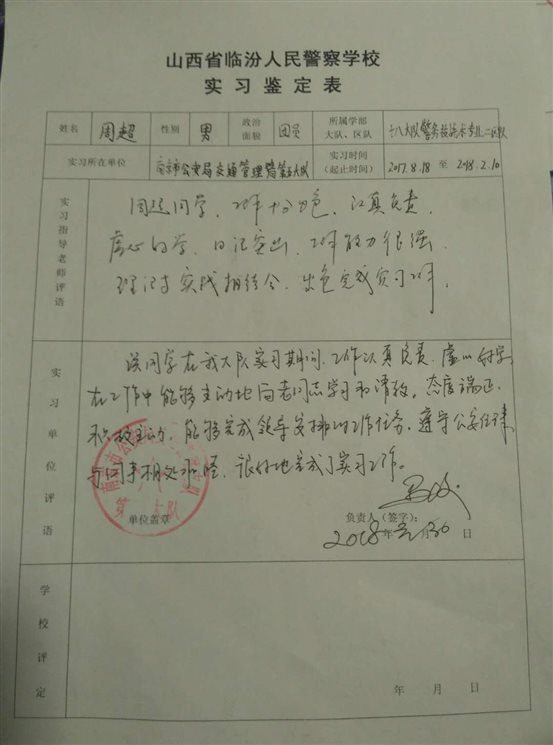 山西省临汾人民警察学校
实习鉴定表
姓名 周超 性别 男 政治面貌 团员 所属学部大队、区队 十八大队警务技战术专业二区队
实习所在单位 南京市公安局交通管理局第五大队 实习时间(起止时间) 2017.8.18 至 2018.2.10
实习指导老师评语
周超同学,工作十分出色,认真负责,
虚心好学,日记突出,工作能力很强,
理论与实践相结合,出色完成实习工作。
实习单位评语
该同学在我大队实习期间,工作认真负责,虚心好学
在工作中能够主动地向老同志学习和请教,态度端正,
积极主动,能够完成领导安排的工作任务,遵守公安纪律,
与同事相处和睦,很好地完成了实习工作。
单位盖章
负责人(签字):
2018年 月30日
学校评定
年 月 日